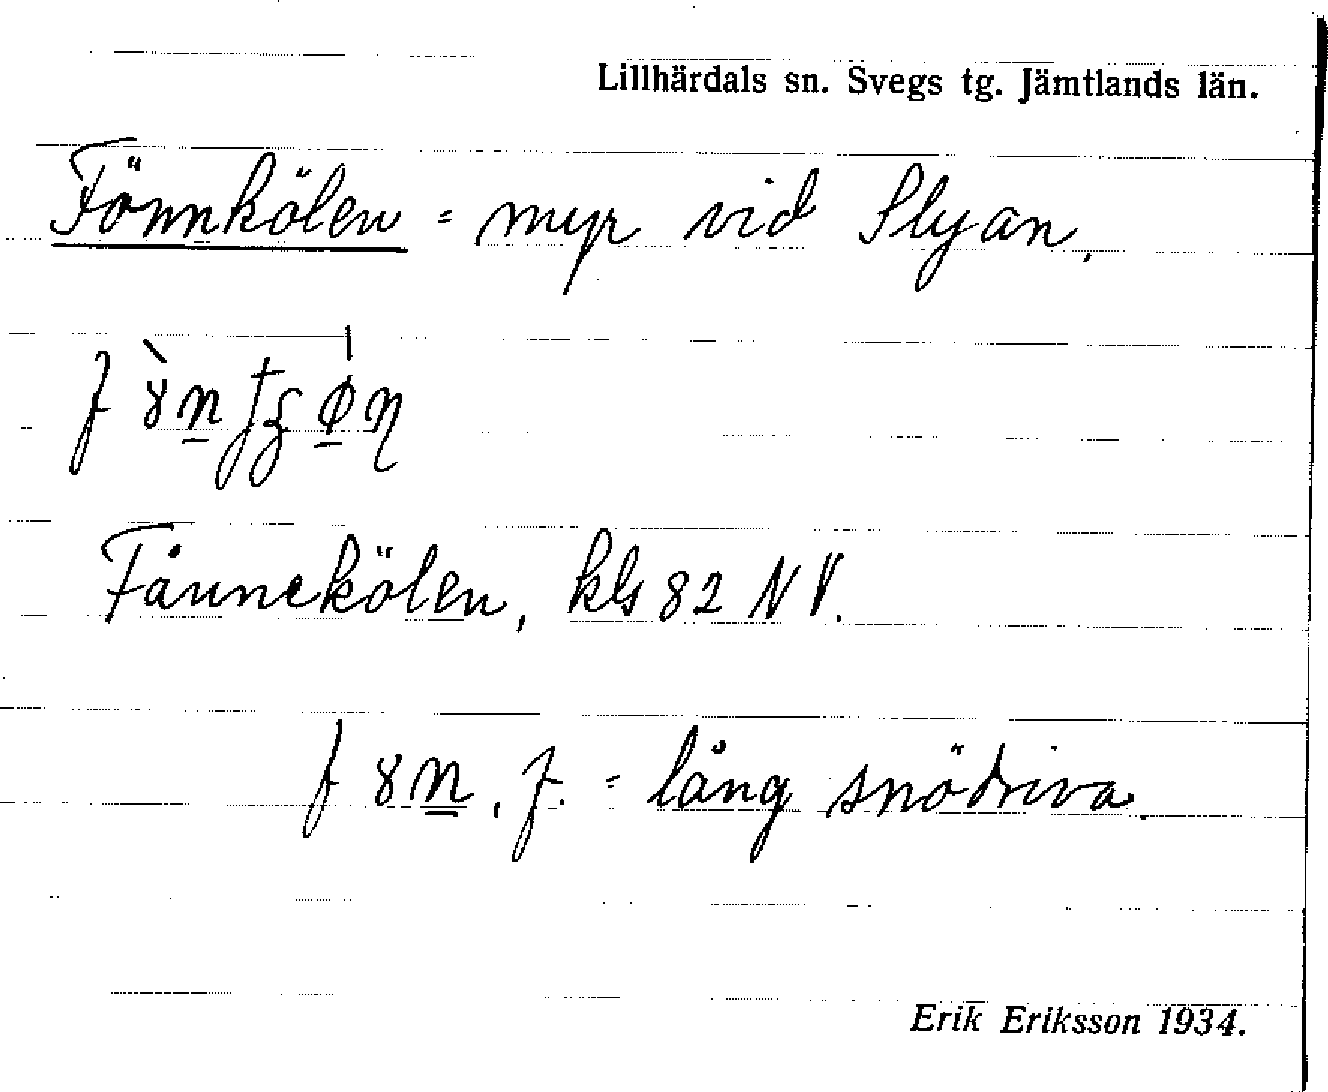 Lillhärdals sn. Svegs tg. Jämtlands län.
Fönnkölen = myr vid Slyan,
Fånnekölen, kls 82 NV.
f. = lång snödriva.
Erik Eriksson 1934.